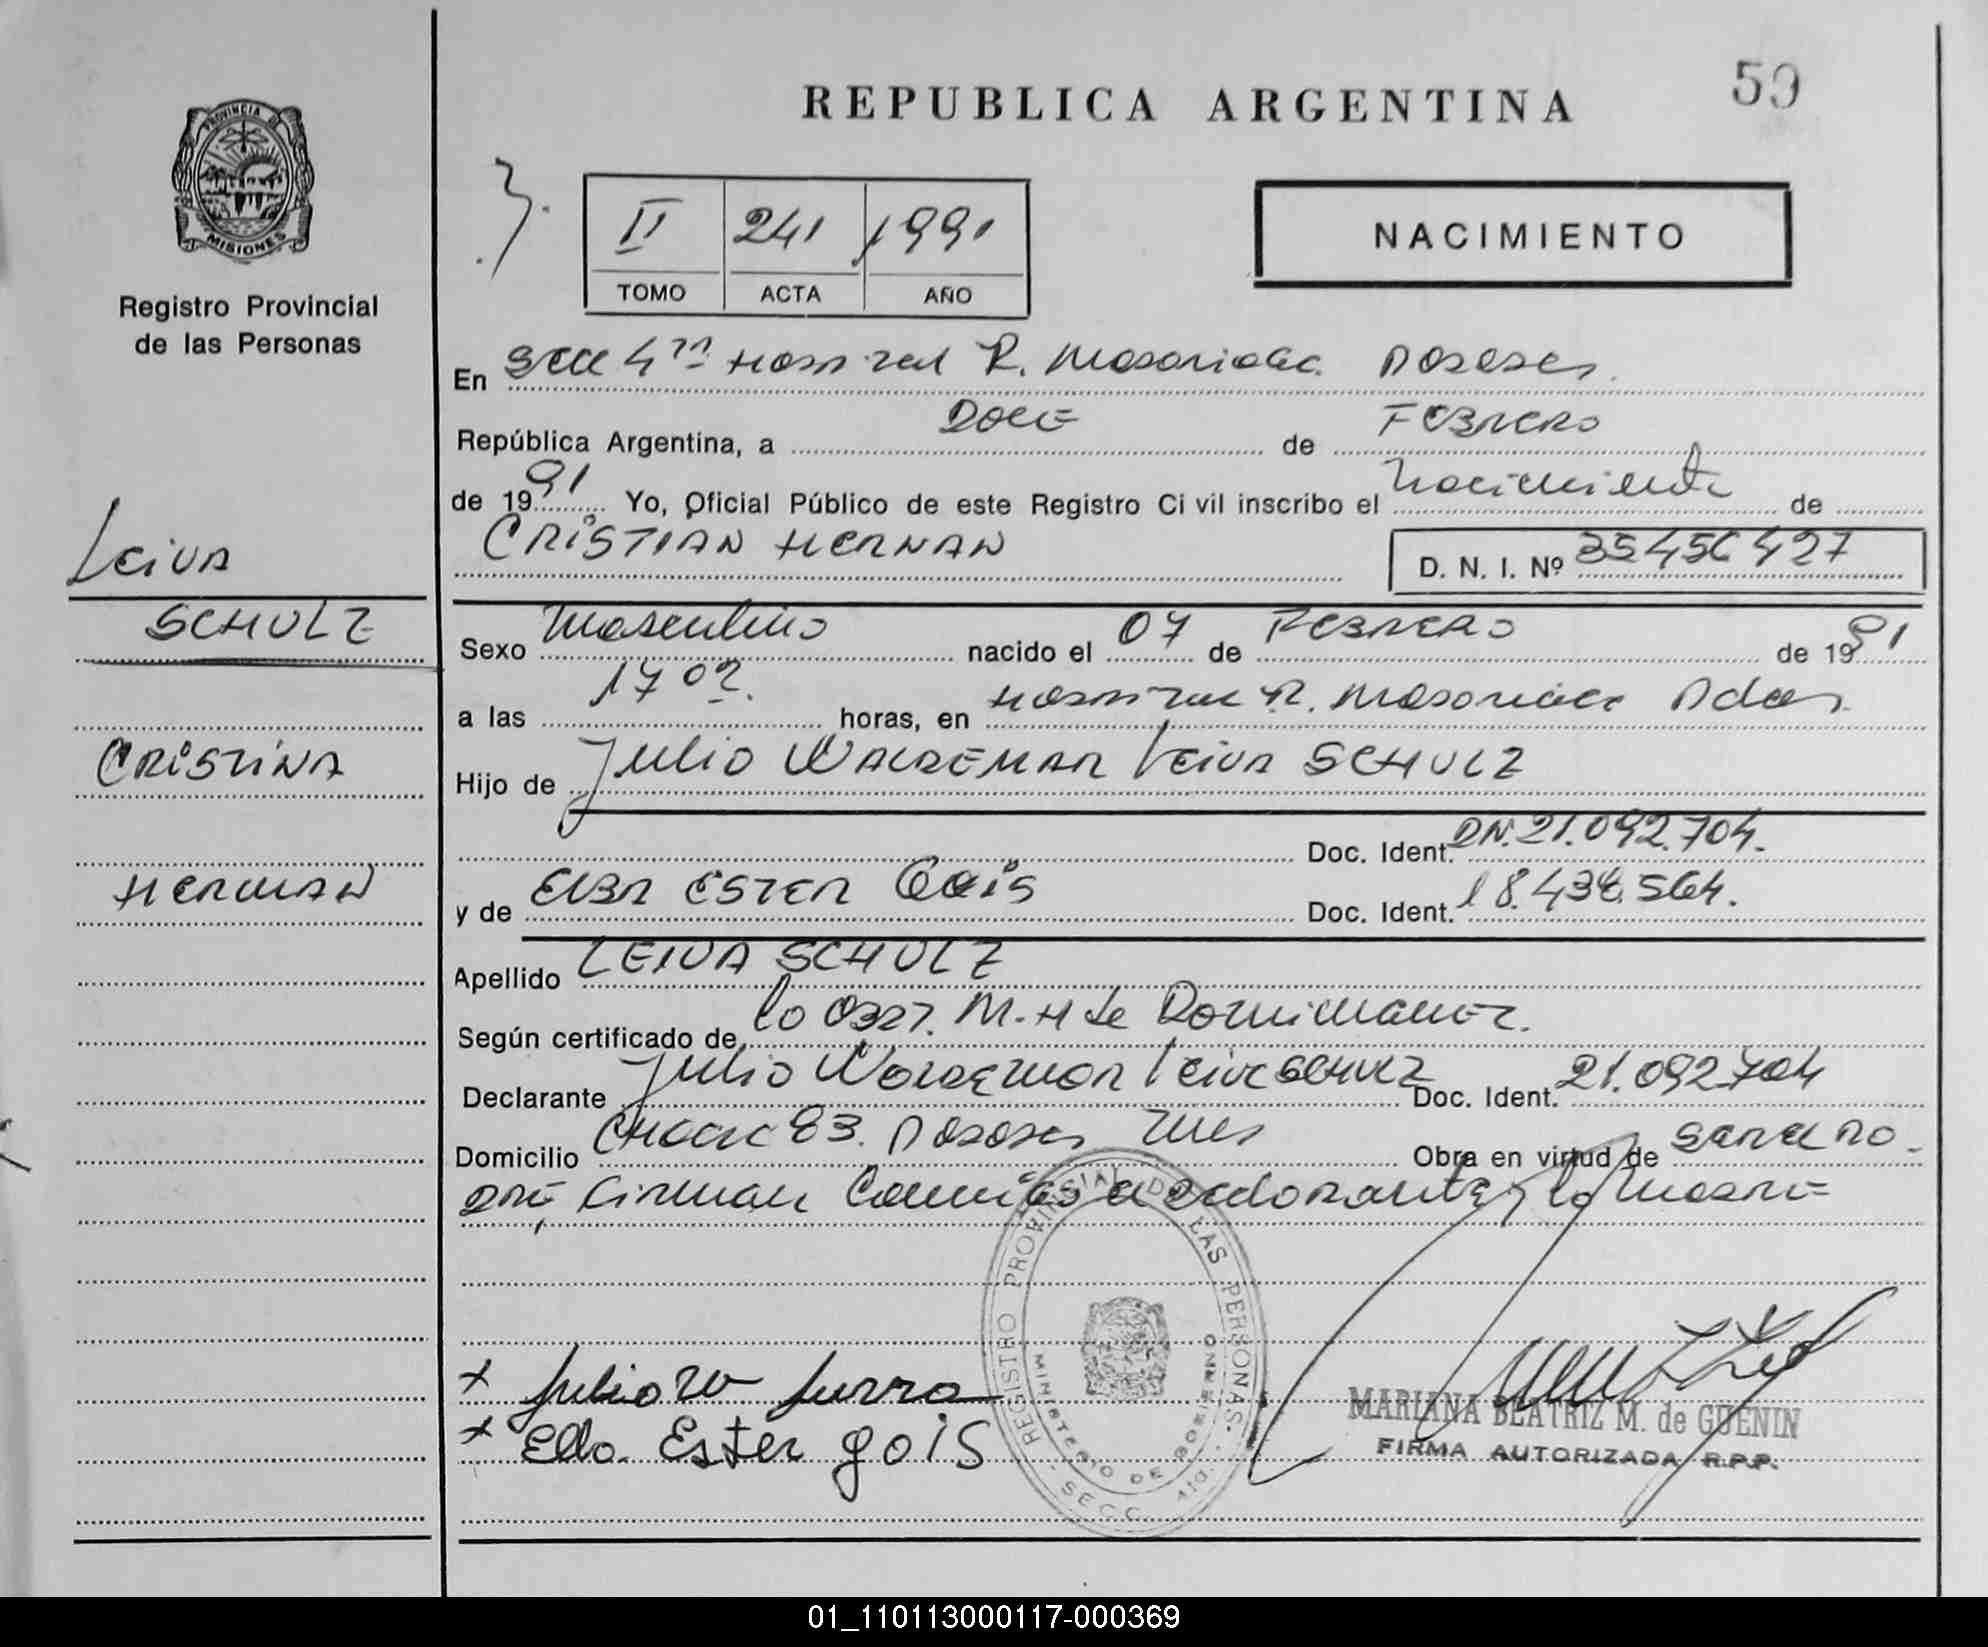 REPUBLICA ARGENTINA
59
PROVINCIA DE
MISIONES
Registro Provincial
de las Personas
II 241 1991
TOMO ACTA AÑO
NACIMIENTO
En Secc 4ta Hospital R. Madariaga Posadas
República Argentina, a DOCE de FEBRERO
de 1991 Yo, Oficial Público de este Registro Civil inscribo el nacimiento de
CRISTIAN HERNAN D. N. I. Nº 35456427
Leiva
SCHULZ
CRISTINA
HERNAN
Sexo Masculino nacido el 07 de FEBRERO de 1991
a las 17 02 horas, en Hospital R. Madariaga Pdas
Hijo de Julio WALDEMAR Leiva SCHULZ
Doc. Ident. DN. 21.092.704.
y de ELBA ESTER Gois Doc. Ident. 18.438.564.
Apellido LEIVA SCHULZ
Según certificado de la Obst. M. H de
Declarante Julio Waldemar Leiva SCHULZ Doc. Ident. 21.092704
Domicilio Chacra 83. Posadas Mnes Obra en virtud de ser el PA-
DRE, Firman declarante y la MADRE
Ester gois
REGISTRO PROVINCIAL DE LAS PERSONAS
MINISTERIO DE GOBIERNO
SECC. 4ta.
MARIANA BEATRIZ M. de GUENIN
FIRMA AUTORIZADA R.P.P.
01_110113000117-000369